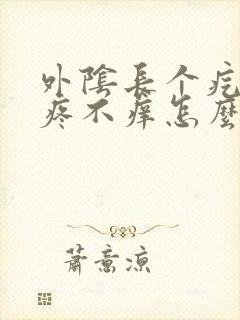 外陰長个疙
疼不癢怎麼
蕭意涼